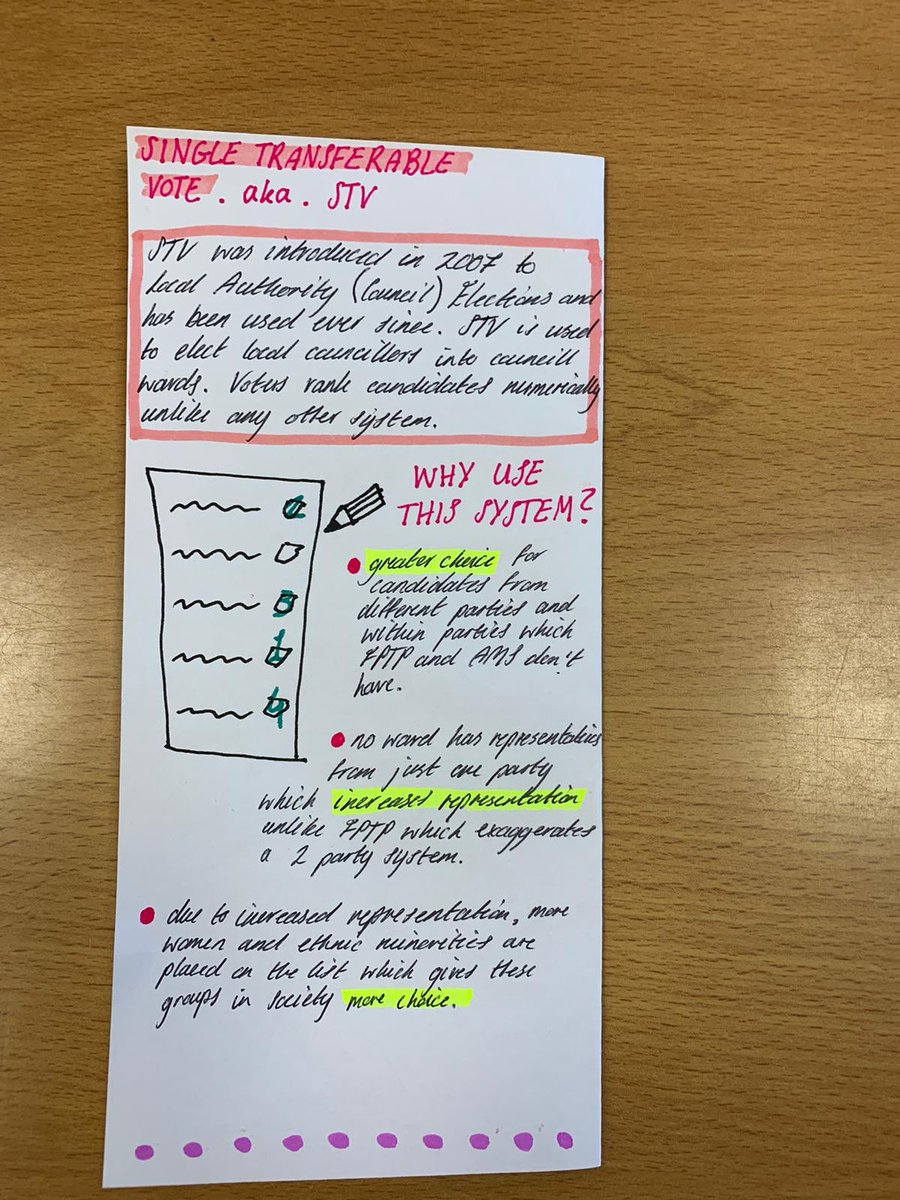 SINGLE TRANSFERABLE
VOTE. aka. STV
STV was introduced in 2007 to
Local Authority (Council) Elections and
has been used ever since. STV is used
to elect local councillers into councill
wards. Voters rank candidates numerically
unlike any other system.
WHY USE
THIS SYSTEM?
greater choice for
candidates from
different parties and
within parties which
FPTP and AMS don't
have.
3
1
4
no ward has representatives
from just one party
which increases representation
unlike FPTP which exaggerates
a 2 party system.
due to increased representation, more
women and ethnic minorities are
placed on the list which gives these
groups in society more choice.